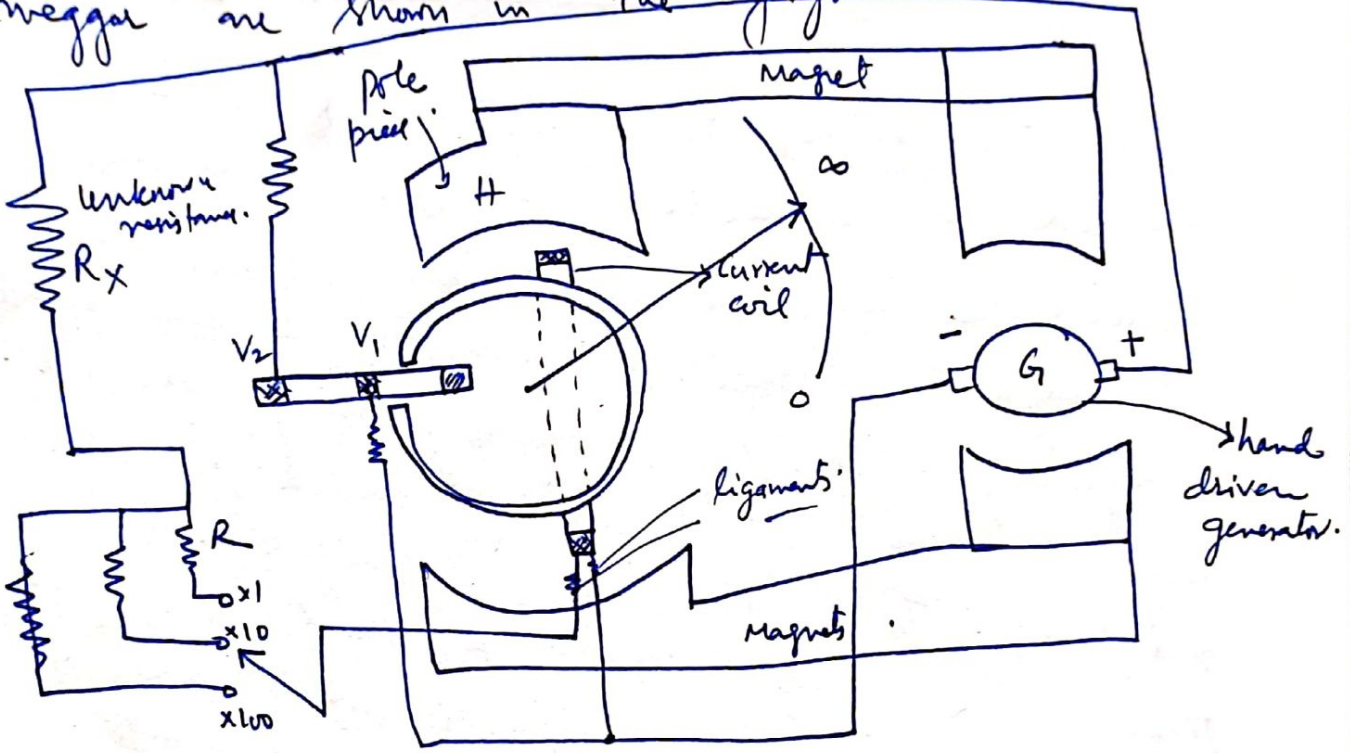 meggar are shown in the
Magnet
pole
piece.
∞
H
Unknown
resistance.
RX
current
coil
V2
V1
-
+
G
0
hand
driven
generator.
ligaments.
R
x1
x10
x100
Magnets